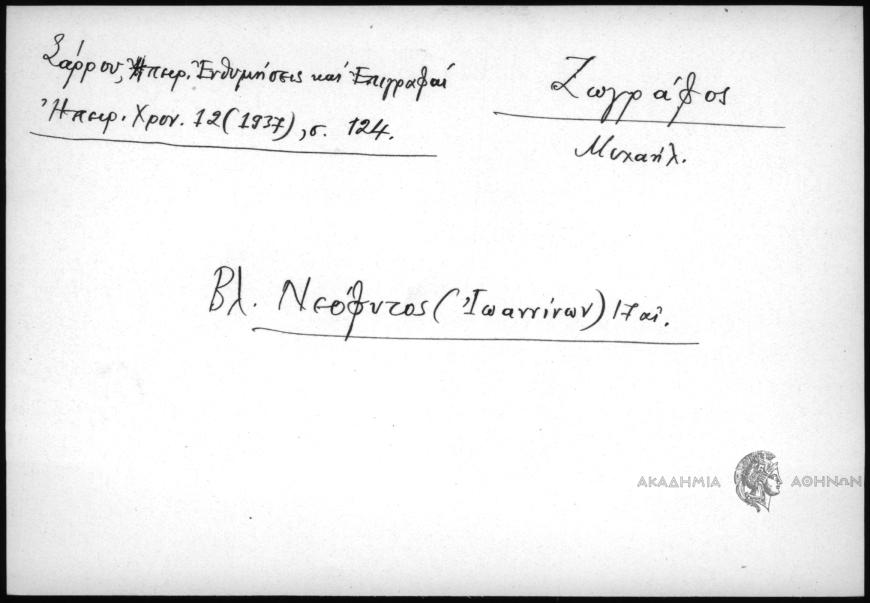 Σάρρου, Ἠπειρ. Ἐνθυμήσεις καί Ἐπιγραφαί
Ἠπειρ. Χρον. 12 (1937), σ. 124.
Ζωγράφος
Μιχαήλ.
Βλ. Νεόφυτος (Ἰωαννίνων) 17 αἰ.
ΑΚΑΔΗΜΙΑ ΑΘΗΝΩΝ